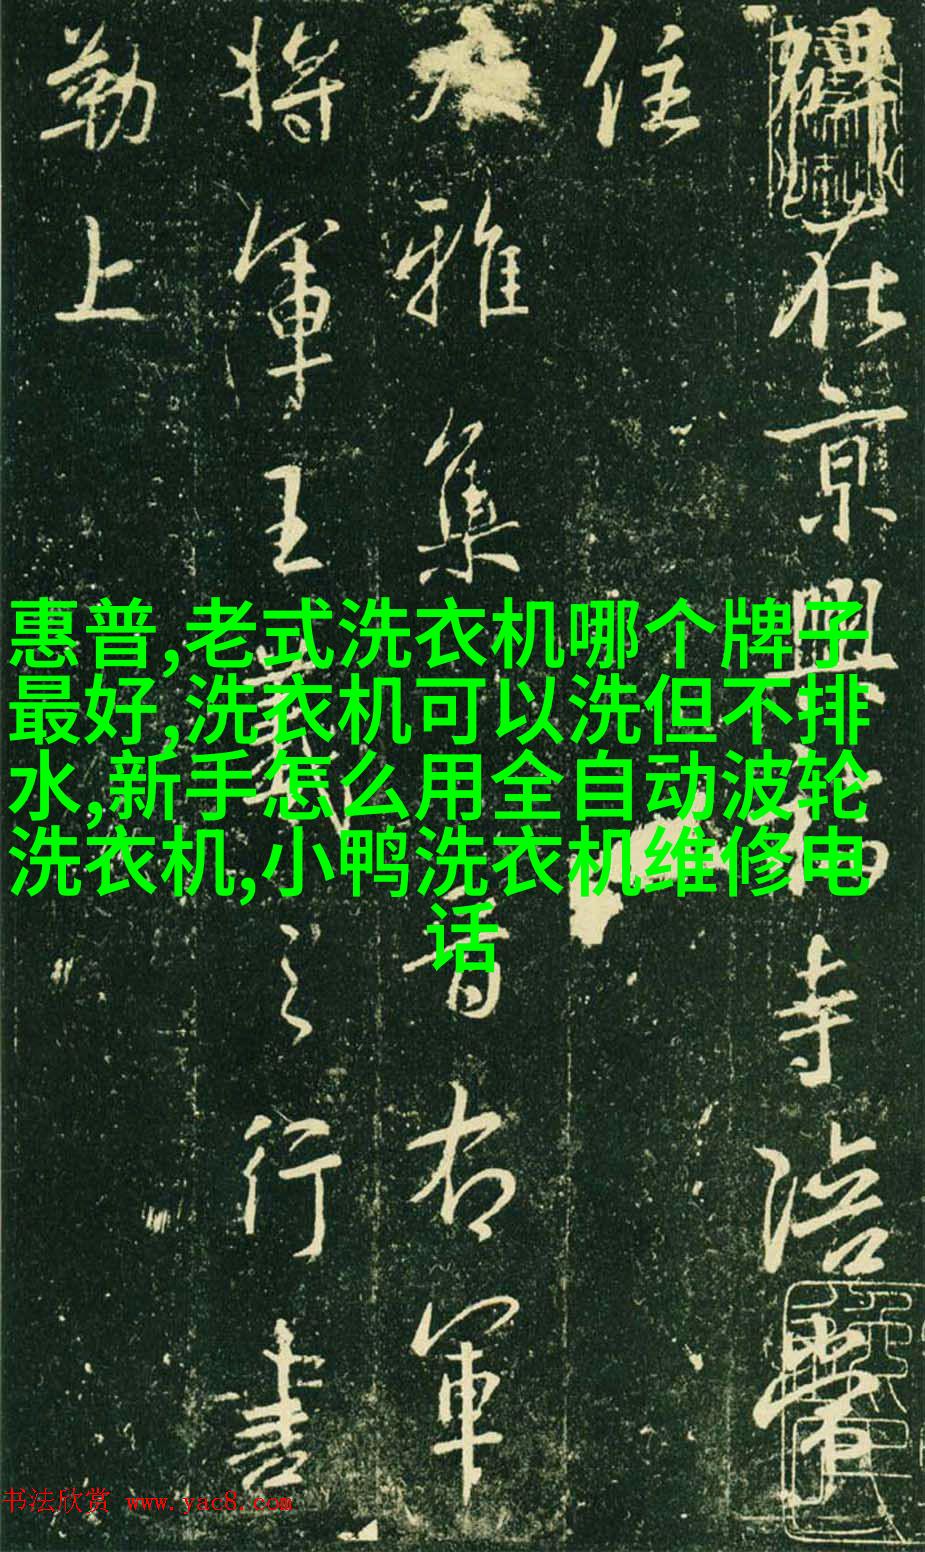 碑在京兴福寺陪常
住
大雅集晋右军
将军王羲之行书
勒上
惠普,老式洗衣机哪个牌子
最好,洗衣机可以洗但不排
水,新手怎么用全自动波轮
洗衣机,小鸭洗衣机维修电
话
书法欣赏 www.yac8.com